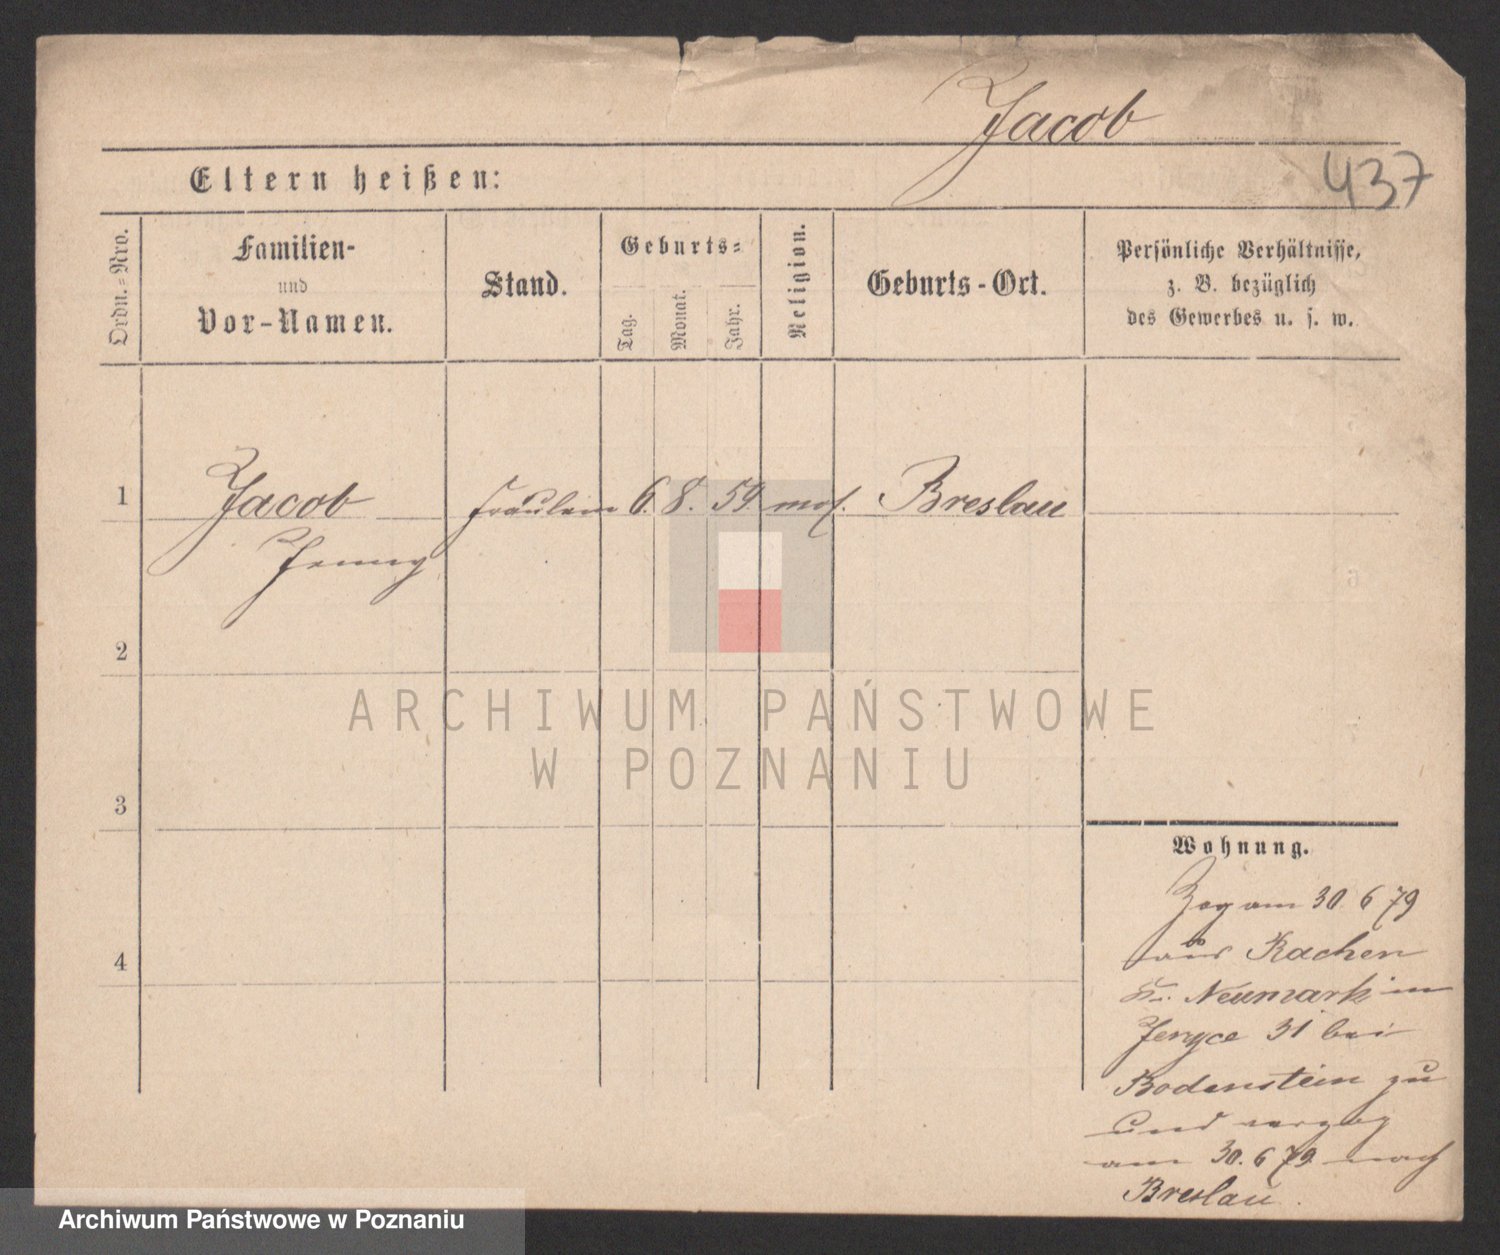 Jacob
437
Eltern heißen:
Ordn.=Nro.
Familien-
und
Vor-Namen.
Stand.
Geburts=
Tag.
Monat.
Jahr.
Religion.
Geburts-Ort.
Persönliche Verhältnisse,
z. B. bezüglich
des Gewerbes u. s. w.
1
Jacob
Jenny
Fräulein
6. 8. 59
mos.
Breslau
2
3
4
Wohnung.
Zog am 30 6 79
aus Rachen
Kr. Neumark in
31 bei
Bodenstein zu
und verzog
am 30. 6 79 nach
Breslau.
ARCHIWUM PAŃSTWOWE
W POZNANIU
Archiwum Państwowe w Poznaniu